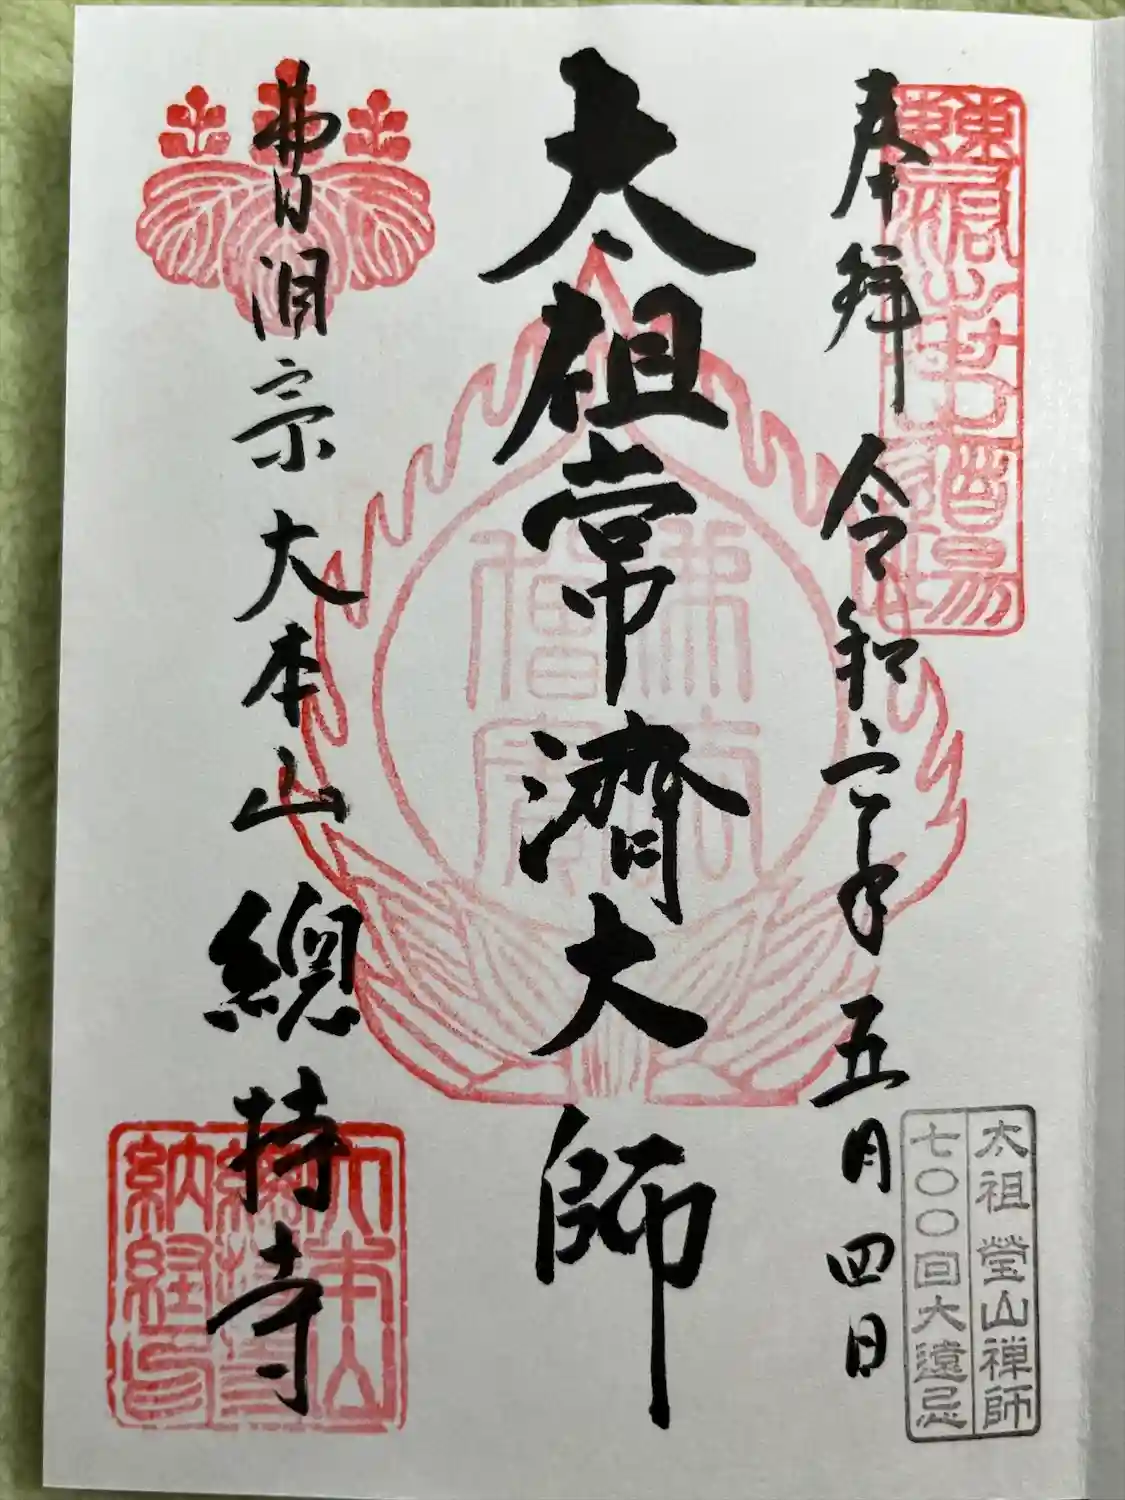 奉拝
令和六年五月四日
太祖常濟大師
曹洞宗大本山總持寺
佛法
僧寳
大本山
總持寺
納経印
太祖瑩山禅師
七〇〇回大遠忌